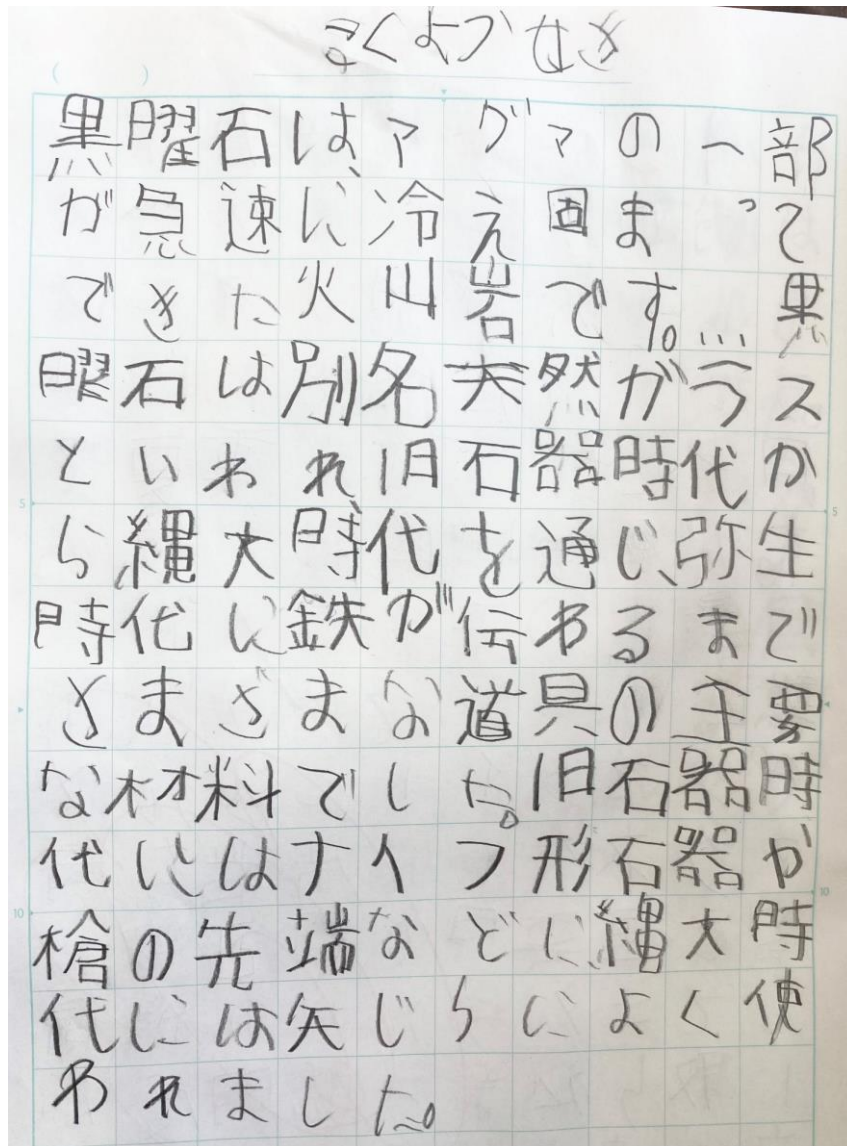 こくようせき
黒曜石は、マグマの一部
が急速に、冷え固まって
できた火山岩です。…黒
曜石は別名天然ガラス
といわれ、旧石器時代か
ら縄文時代を通じ、弥生
時代に鉄が伝わるまで
さまざまな道具の主要
な材料でした。旧石器時
代にはナイフ形石器や
槍の先端などに、縄文時
代には矢じりによく使
われました。
5
5
10
10